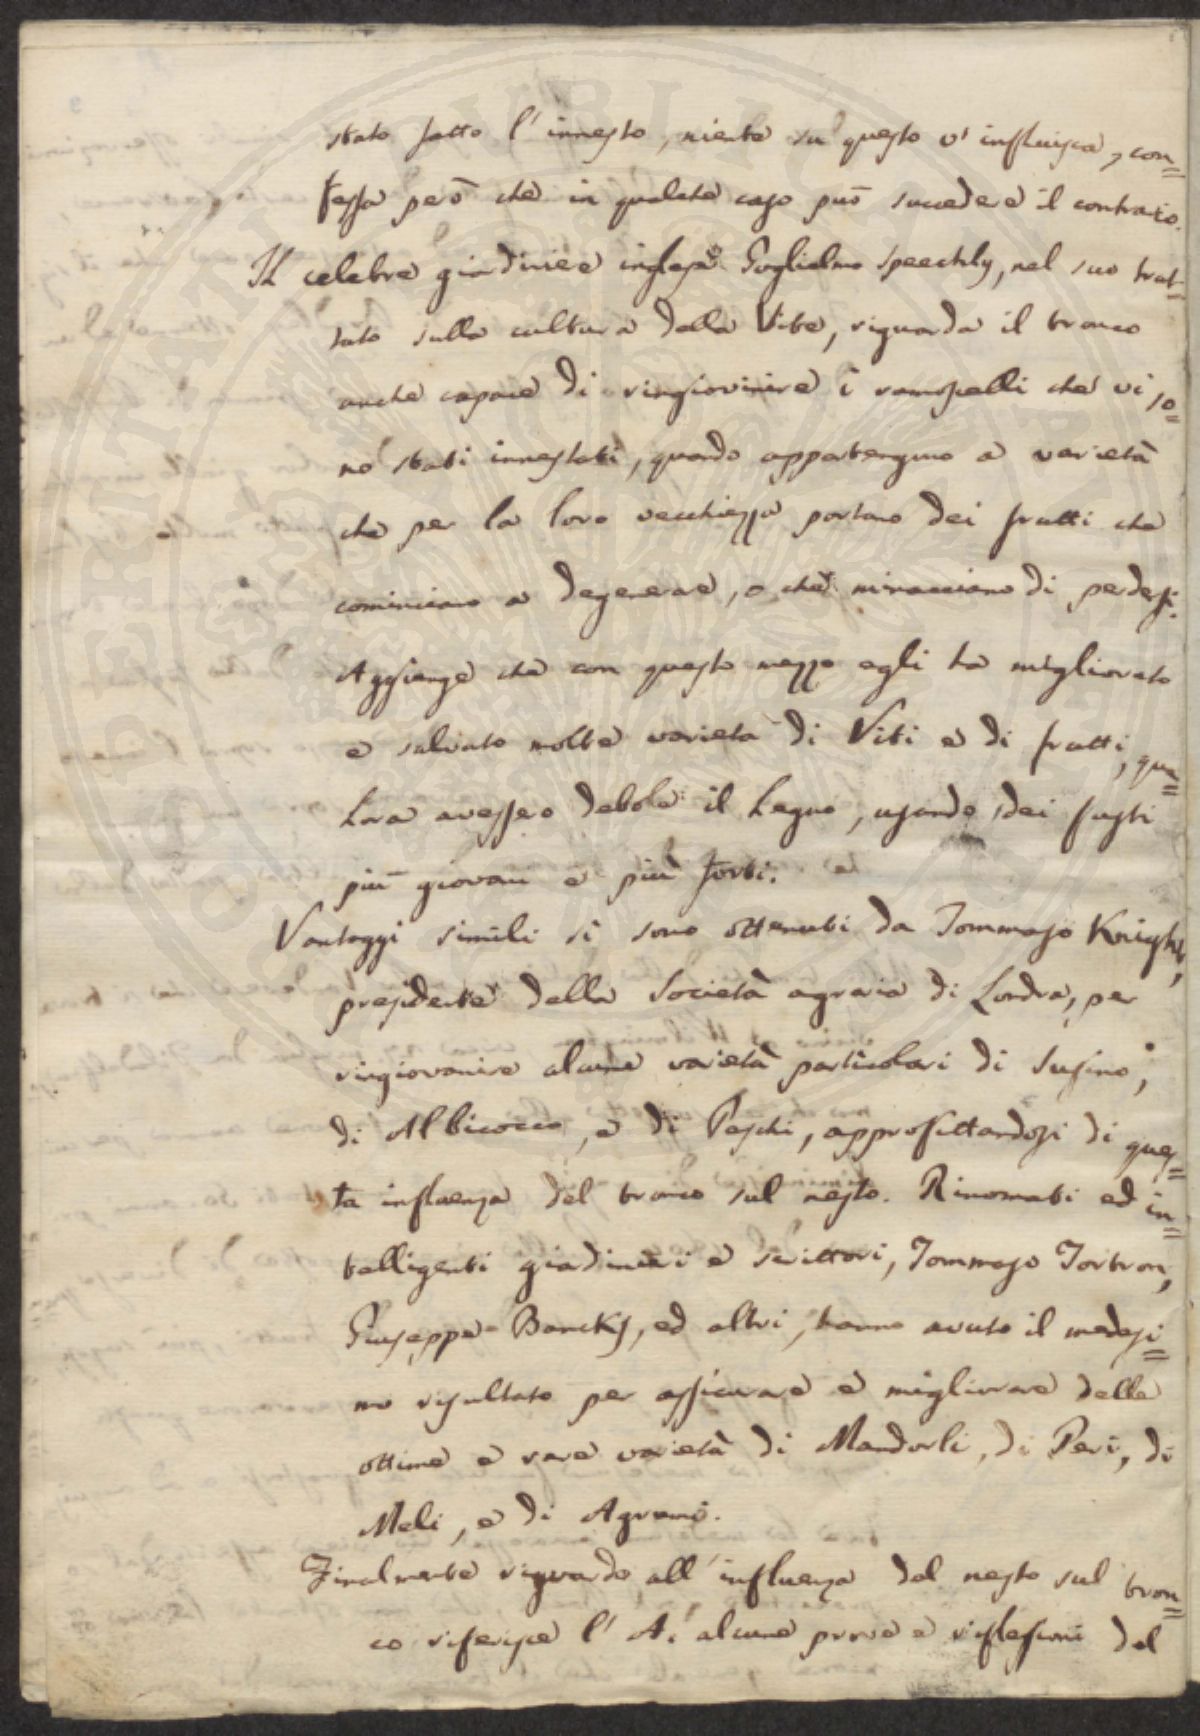 stato fatto l' innesto, niente su questo v' influisca, con=
fessa però che in qualche caso può succedere il contrario.
Il celebre giardiniere inglese Guglielmo Speechly, nel suo trat=
tato sulla cultura della Vite, riguarda il tronco
anche capace di ringiovinire i ramoscelli che vi so=
no stati innestati, quando appartengino a varietà
che per la loro vecchiezza portano dei frutti che
cominciano a degenerare, o che minacciano di perdersi.
Aggiunge che con questo mezzo egli ha migliorato
e salvato molte varietà di Viti e di frutti, qua=
lora avessero debole il legno, usando dei fusti
più giovani e più forti.
Vantaggi simili si sono ottenuti da Tommaso Knight,
presidente della Società agraria di Londra, per
ringiovanire alcune varietà particolari di Susino,
di Albicocco, e di Peschi, approfittandosi di ques=
ta influenza del tronco sul nesto. Rinomati ed in=
telligenti giardinieri e scrittori, Tommaso Torbron,
Giuseppe Bancks, ed altri, hanno avuto il medesi=
mo risultato per assicurare e migliorare delle
ottime e rare varietà di Mandorli, di Peri, di
Meli, e di Agrumi.
Finalmente riguardo all' influenza del nesto sul tron=
co riferisce l' A. alcune prove e riflessioni del